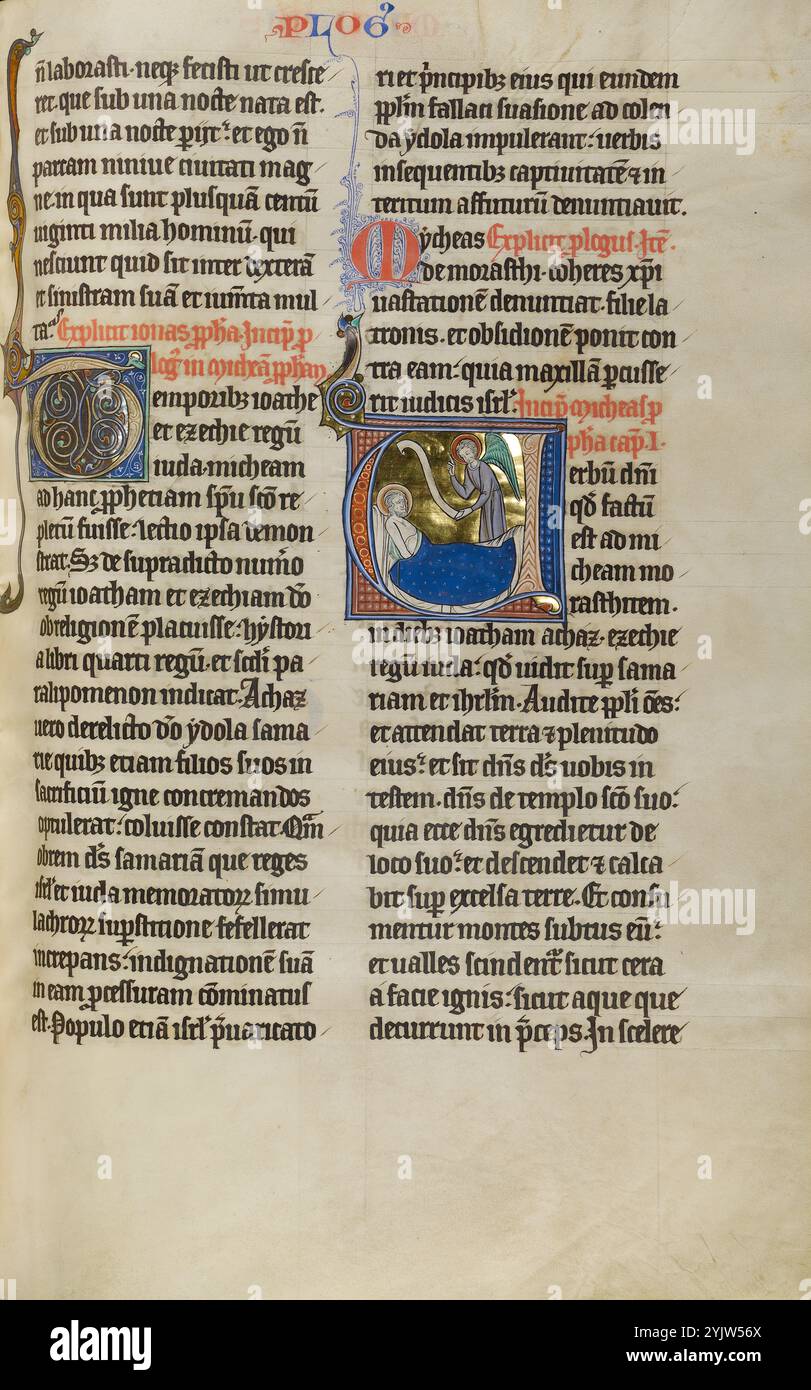 PLOG
n̄ laborasti · neq; fecisti ut cresce
ret · que sub una nocte nata est ·
et sub una nocte pijt : et ego n̄
parcam niniue ciuitati mag
ne · in qua sunt plusquā centū
uiginti milia hominū · qui
nesciunt quid sit inter dexterā
et sinistram suā et iumta mul
ta · Explicit ionas ppha · Incip p
log in micheā pphā
Temporib; ioathe
et ezechie regū
iuda · micheam
ad hanc pphetiam spu sco re
pletū fuisse : lectio ipsa demon
strat · Sz de supradicto numo
regū ioatham et ezechiam do
ob religionē placuisse : hystori
a libri quarti regū · et scdi pa
ralipomenon indicat · Achaz
uero derelicto do ydola sama
rie quib; etiam filios suos in
sacrificiū igne concremandos
optulerat : coluisse constat · Qm
obrem ds samariā que reges
isrl et iuda memoratorꝝ simu
lachrorꝝ supstitione fefellerat
increpans : indignationē suā
in eam pcessuram cōminatus
est · Populo etiā isrl puaricato
ri et pncipib; eius qui eundem
pplm fallaci suasione ad colen
da ydola impulerant : uerbis
insequentib; captiuitatē ⁊ in
teritum affuturū denuntiauit ·
Mycheas Explicit plogus · Ite ·
de morasthi · coheres xpi
uastationē denuntiat · filie la
tronis · et obsidionē ponit con
tra eam : quia maxillā pcusse
rit iudicis isrl : Incip micheas p
pha cap · I ·
Uerbū dni
qd factū
est ad mi
cheam mo
rasthitem ·
in dieb; ioatham achaz · ezechie
regū iuda : qd uidit sup sama
riam et ihrlm · Audite ppli oēs :
et attendat terra ⁊ plenitudo
eius : et sit dns ds uobis in
testem · dns de templo sco suo :
quia ecce dns egredietur de
loco suo : et descendet ⁊ calca
bit sup excelsa terre · Et consu
mentur montes subtus eū :
et ualles scindent sicut cera
a facie ignis : sicut aque que
decurrunt in pceps · In scelere
alamy
alamy
Image ID: 2YJW56X
www.alamy.com